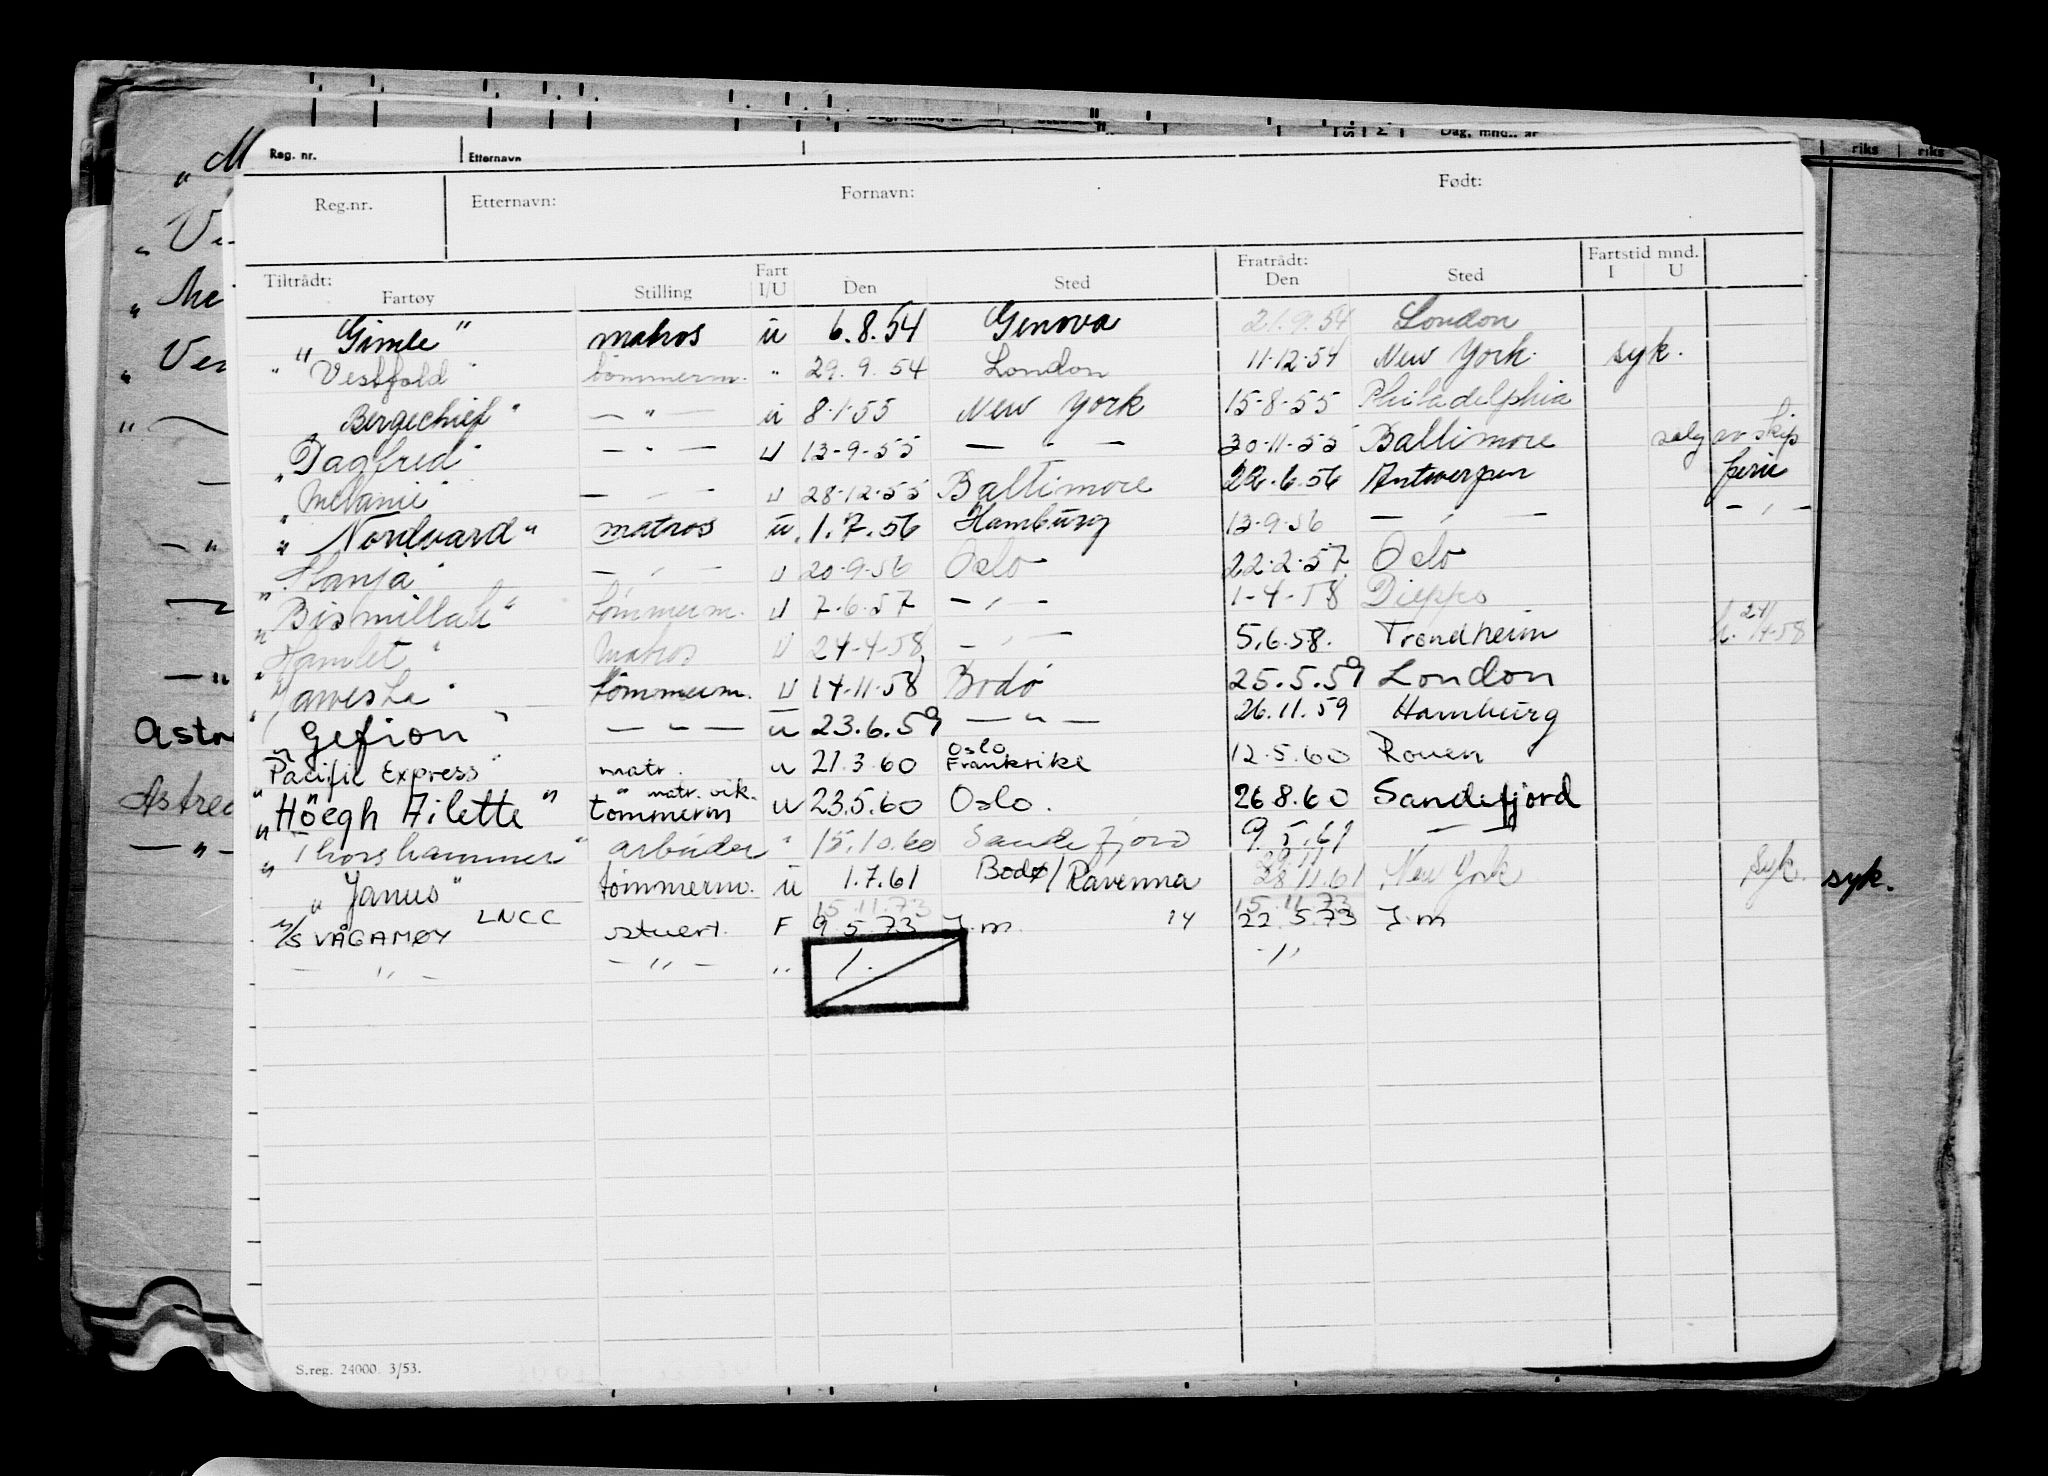 Reg. nr. Etternavn
Reg.nr. Etternavn: Fornavn: Født:
Tiltrådt: Fartøy Stilling Fart I/U Den Sted Fratrådt: Den Sted Fartstid mnd. I U
"Gimle" matros u 6.8.54 Genova 21.9.54 London
"Vestfold" tømmerm. " 29.9.54 London 11.12.54 New York syk.
"Bergechief" — " — u 8.1.55 New York 15-8-55 Philadelphia
"Dagfred" — " — U 13-9-55 — " — 30-11-55 Baltimore salg av skip
"Melanie" — " — U 28-12-55 Baltimore 22.6.56 Antwerpen ferie
"Nordvard" matros u. 1.7.56 Hamburg 13-9-56 — " — — " —
"Hanja" — " — U 20-9-56 Oslo 22.2.57 Oslo
"Bismillah" tømmerm. U 7.6.57 — " — 1-4-58 Dieppe
"Hamlet" Matros U 24-4-58 — " — 5.6.58. Trondheim
tømmerm. U 14-11-58 Bodø 25.5.59 London
"Gefion" — " — u 23.6.59 — " — 26.11.59 Hamburg
"Pacific Express" matr. u 21.3.60 Oslo Frankrike 12.5.60 Rouen
"Höegh Ailette" " matr. vik. tømmerm u 23.5.60 Oslo. 26 8.60 Sandefjord
"Thorshammer" arbeider " 15.10.60 Sandefjord 9.5.61 — " —
"Janus" tømmerm. u 1.7.61 Bodø/Ravenna 28.11.61 New York syk. syk.
15.11.73 15.11.73
M/S VÅGAMØY LNCC stuert F 9 5 73 J.m 14 22.5.73 J.m
— " — — " — " 1. — " —
S.reg. 24000. 3/53.